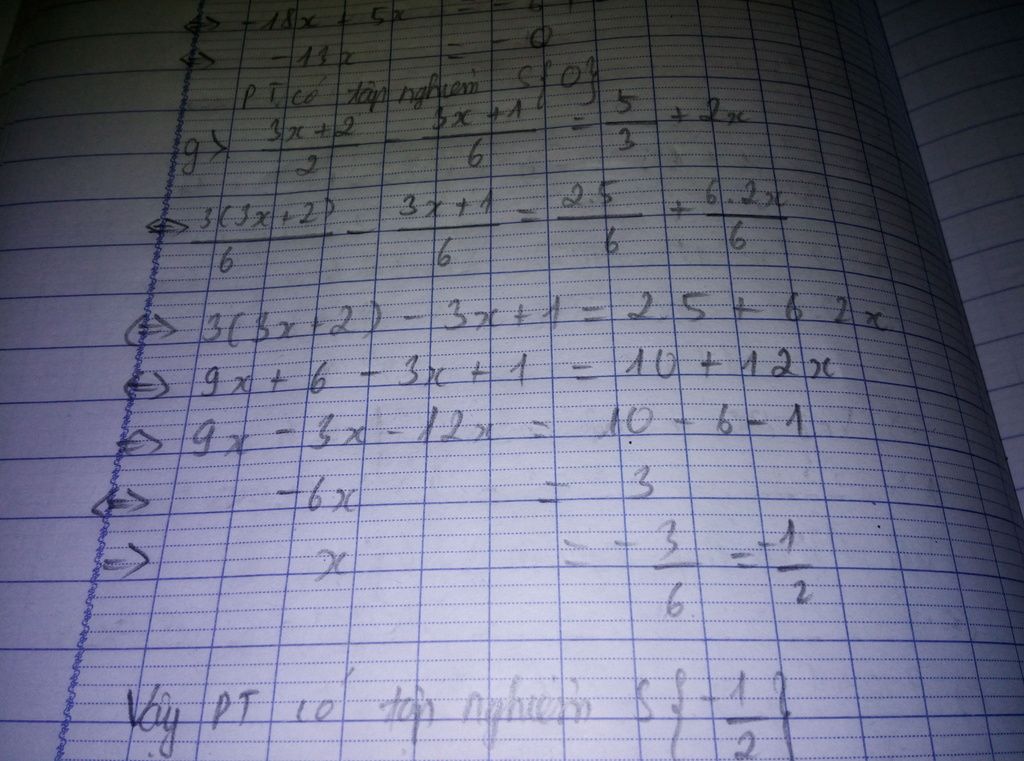 ⇔ -18x + 5x =
⇔ -13x = - 0
PT có tập nghiệm S{0}
g) \frac{3x+2}{2} - \frac{3x+1}{6} = \frac{5}{3} + 2x
⇔ \frac{3(3x+2)}{6} - \frac{3x+1}{6} = \frac{2.5}{6} + \frac{6.2x}{6}
⇔ 3(3x+2) - 3x+1 = 2.5 + 6.2x
⇔ 9x + 6 - 3x + 1 = 10 + 12x
⇔ 9x - 3x - 12x = 10 - 6 - 1
⇔ -6x = 3
=> x = -\frac{3}{6} = \frac{-1}{2}
Vậy PT có tập nghiệm S{-\frac{1}{2}}